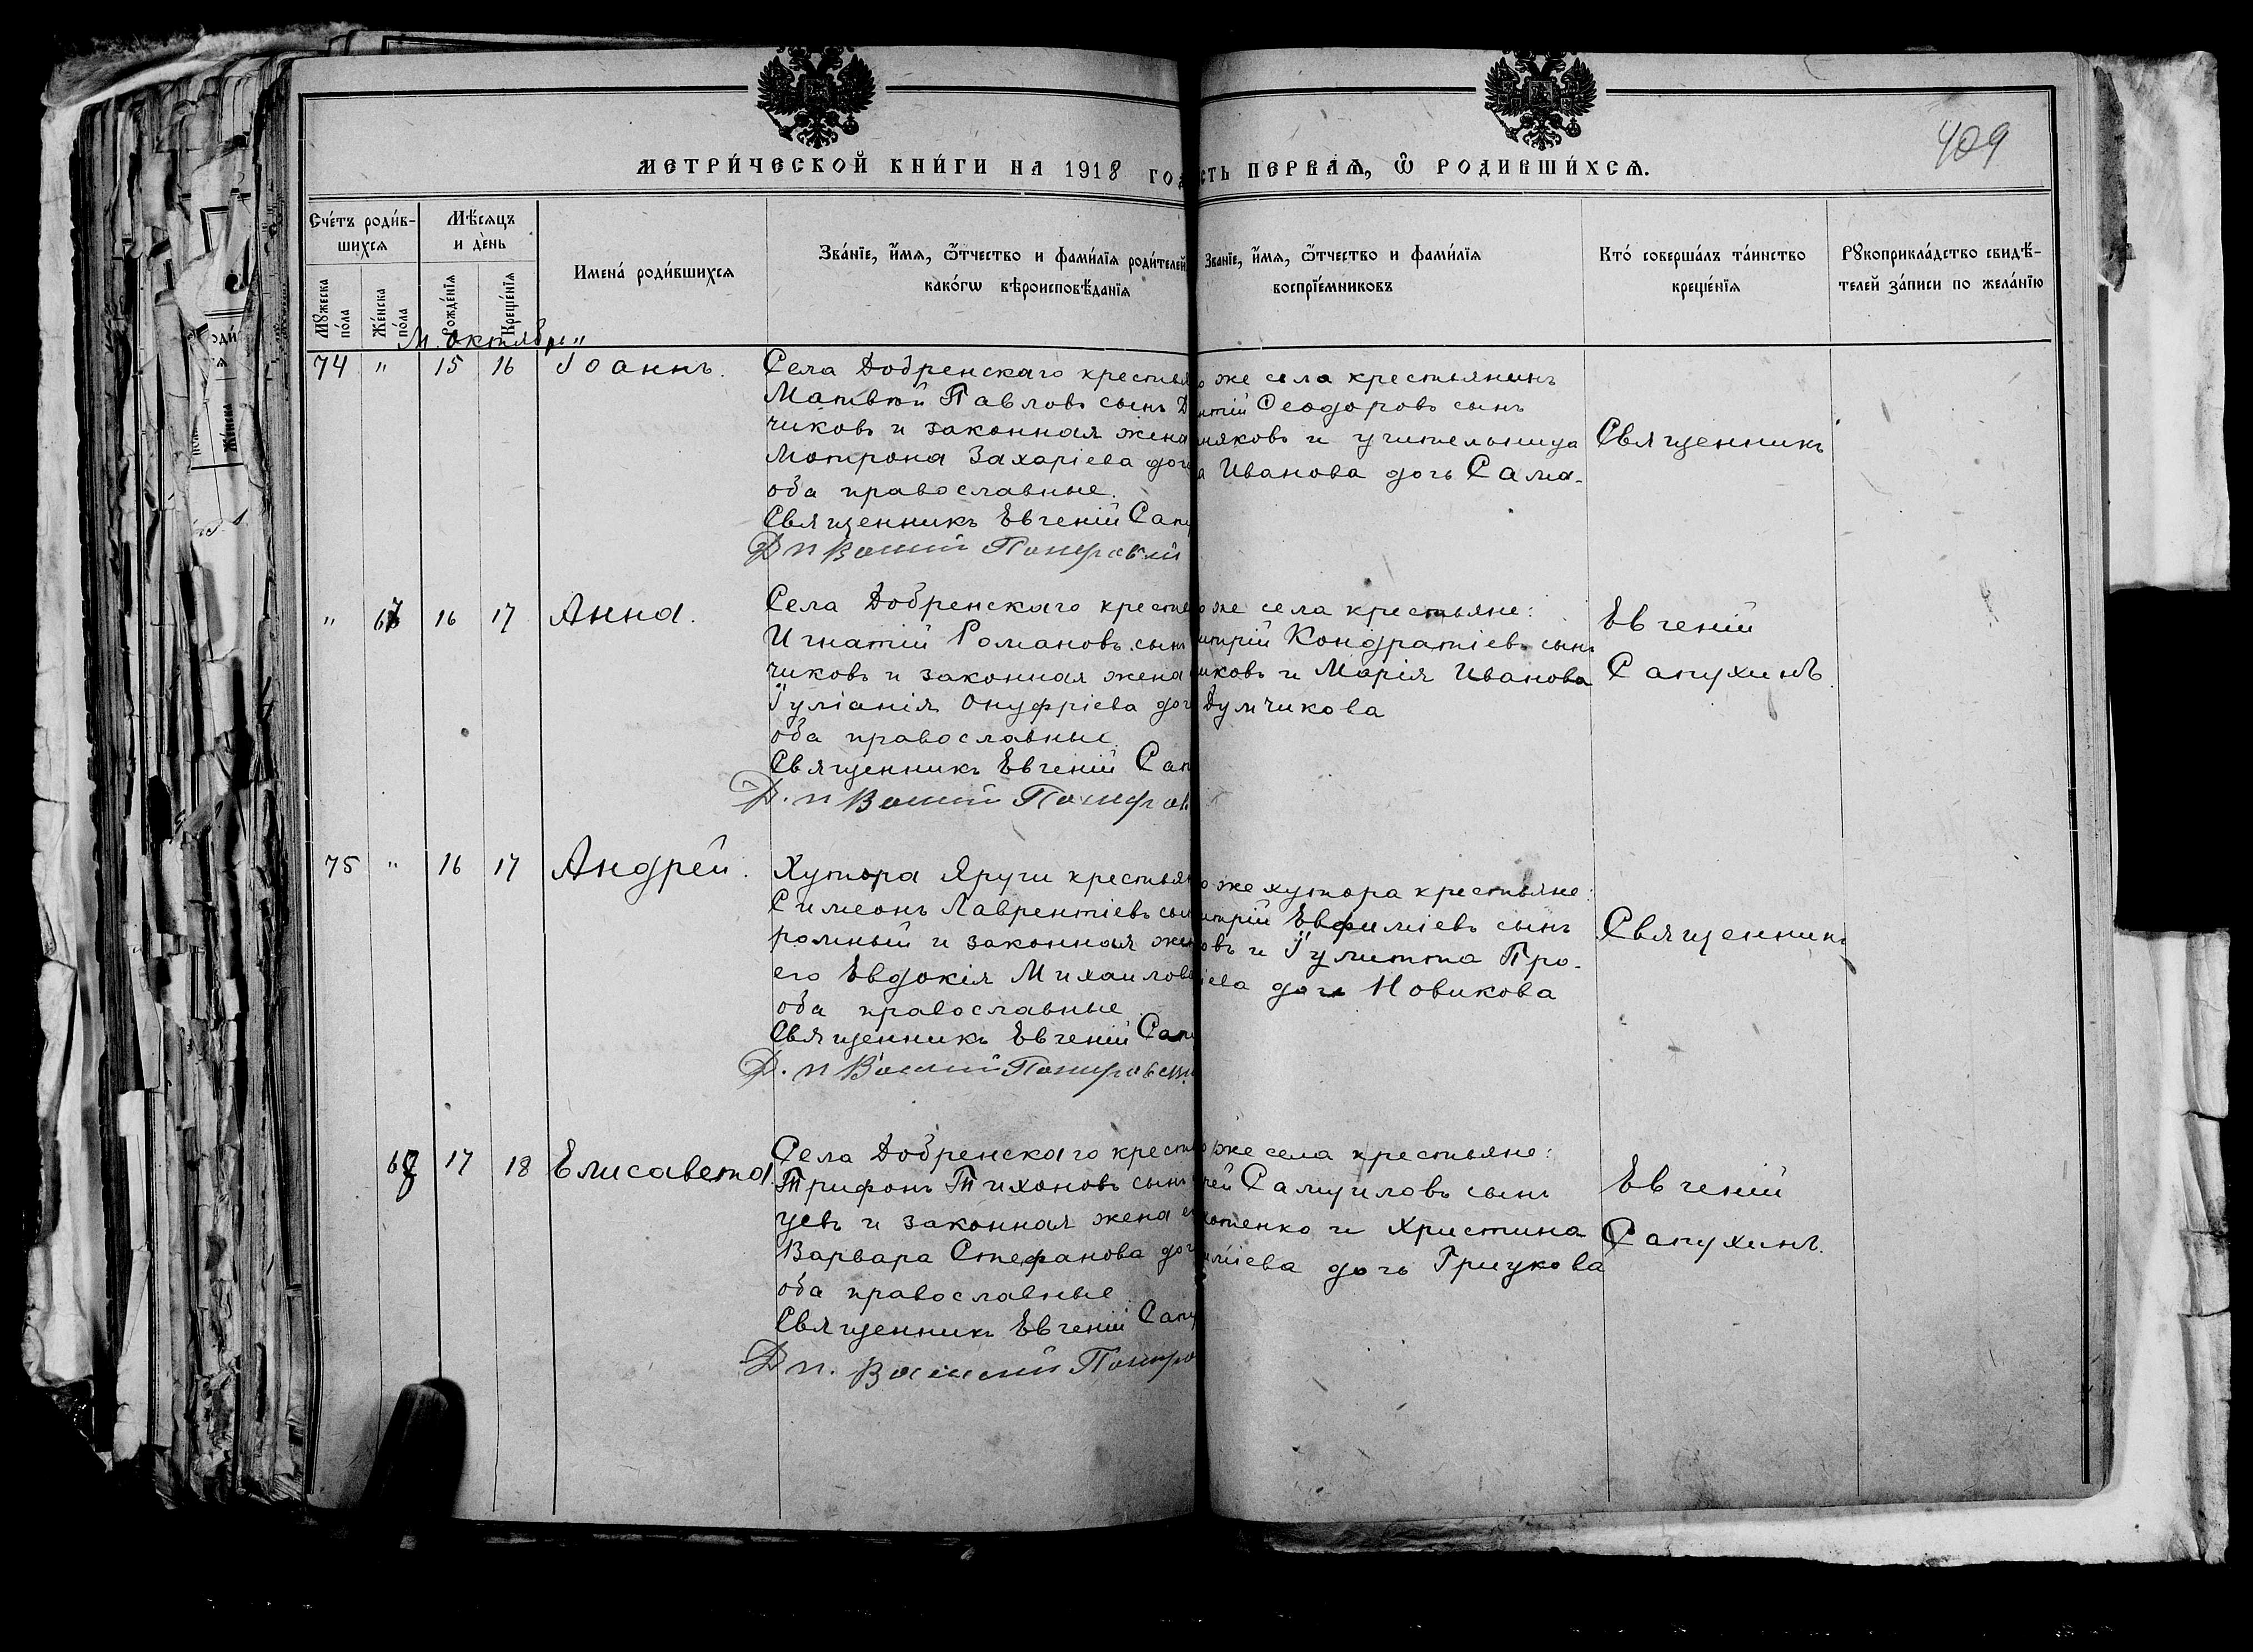 409
МЕТРИ́ЧЕСКОЙ КНИ́ГИ НА 1918 ГОД
СТЬ ПЕРВАѦ, Ѿ РОДИВШИ́ХСѦ.
Сче́тъ роди́в-
шихсѧ
Мѣ́сѧцъ
и де́нь
Имена́ роди́вшихсѧ
Зва́нїе, и҆́мѧ, ѻ҆́тчество и фами́лїѧ роди́телей
како́гѡ вѣроисповѣ́данїѧ
Зва́нїе, и҆́мѧ, ѻ҆́тчество и фами́лїѧ
воспрїе́мниковъ
Кто́ соверша́лъ та́инство
креще́нїѧ
Рꙋкоприкла́дство свидѣ́-
телей за́писи по жела́нїю
Мꙋ́жеска
по́ла
Же́нска
по́ла
Рожде́нїѧ
Креще́нїѧ
М. Октябрь "
74 " 15 16 Іоаннъ.
Села Добренскаго крестья
Матвѣй Павловъ сынъ Д
чиковъ и законная жена
Мотрона Захаріева доч
оба православные.
Священникъ Евгеній Сапу
же села крестьянинъ
нтій Ѳеодоровъ сынъ
няковъ и учительница
а Иванова дочь Сама-
Священникъ
" 67 16 17 Анна.
Села Добренскаго крестья
Игнатій Романовъ сынъ
чиковъ и законная жена
Іуліанія Онуфріева доч
оба православные.
Священникъ Евгеній Сап
же села крестьяне:
итрій Кондратіевъ сынъ
иковъ и Марія Иванова
Думчикова
Евгеній
Сапухинъ.
75 " 16 17 Андрей.
Хутора Яруги крестьян
Симеонъ Лаврентіевъ сын
ромный и законная жен
его Евдокія Михаилов
оба православные
Священникъ Евгеній Сапу
же хутора крестьяне:
итрій Евфиміевъ сынъ
овъ и Іулитта Про-
іева дочь Новикова
Священникъ
68 17 18 Елисавета.
Села Добренскаго кресть
Трифонъ Тихоновъ сынъ
цевъ и законная жена ег
Варвара Стефанова доч
оба православные
Священникъ Евгеній Сапу
же села крестьяне:
ей Самуиловъ сынъ
отенко и Христина
иміева дочь Грицкова
Евгеній
Сапухинъ.